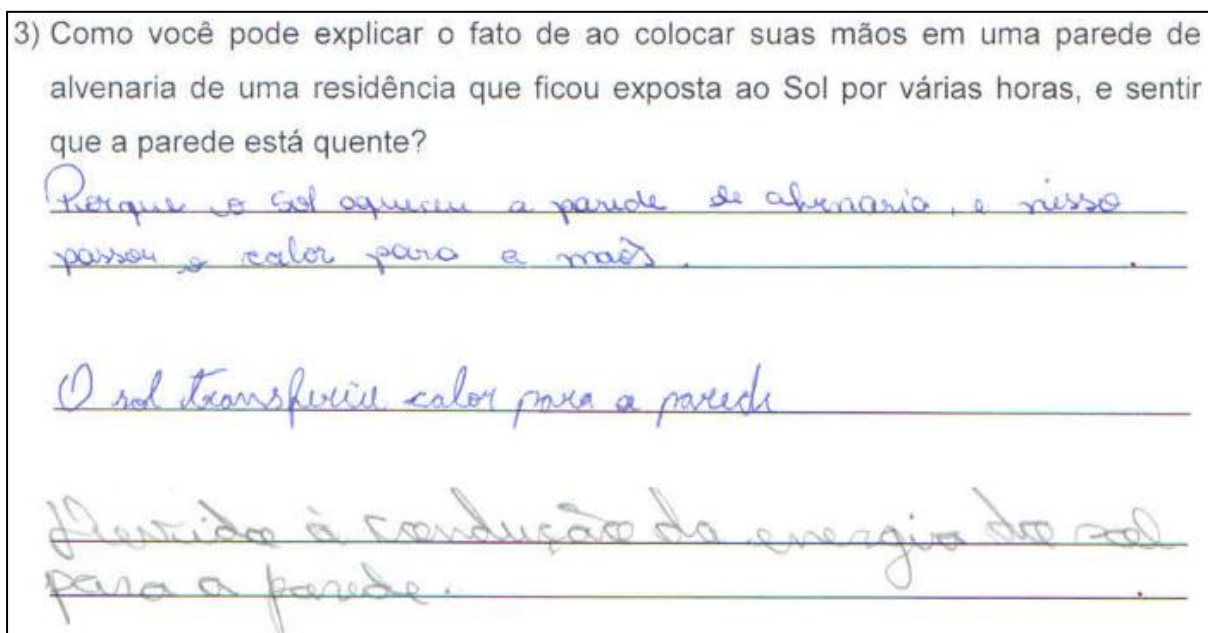 3) Como você pode explicar o fato de ao colocar suas mãos em uma parede de
alvenaria de uma residência que ficou exposta ao Sol por várias horas, e sentir
que a parede está quente?
Porque o Sol aqueceu a parede de alvenaria, e nisso
passou o calor para a mãos.
O sol transferiu calor para a parede
Devido à condução da energia do sol
para a parede.